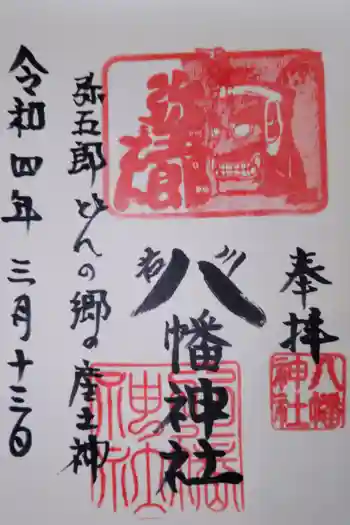 奉拝
八幡神社
岩川
八幡神社
弥五郎どんの郷の産土神
弥五郎
令和四年三月十三日